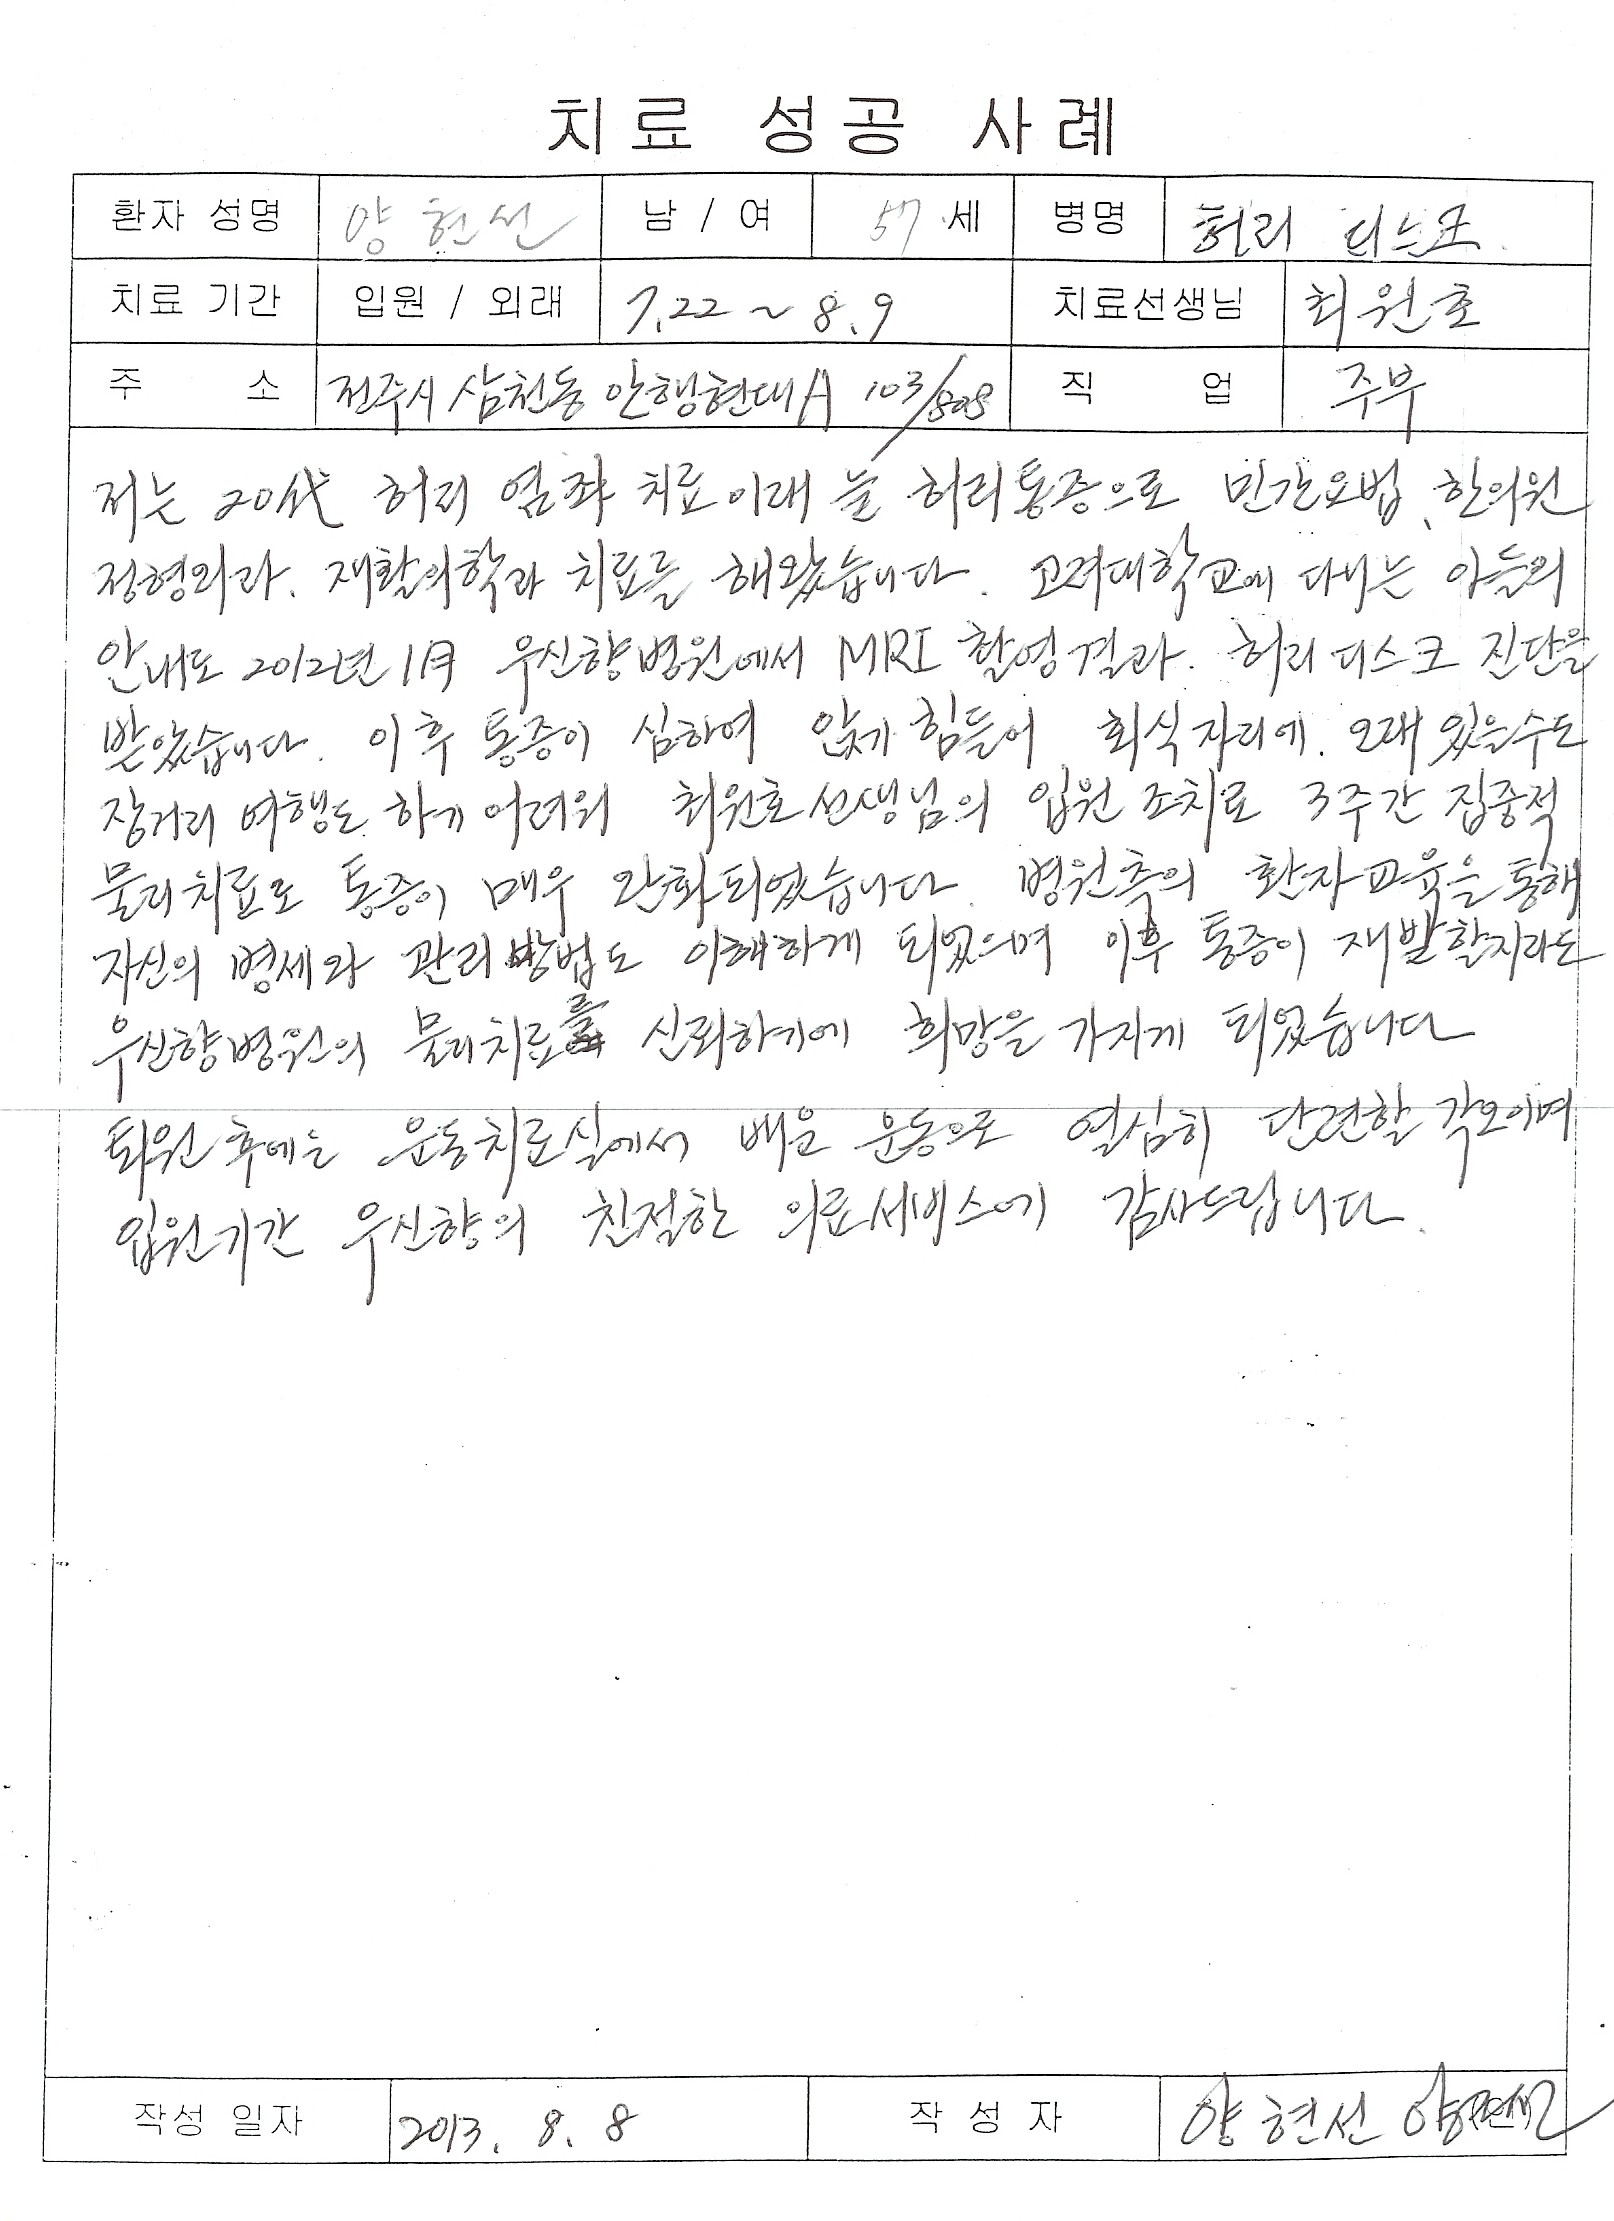 치료 성공 사례
환자 성명 양현선 남 / 여 57 세 병명 허리 디스크.
치료 기간 입원 / 외래 7.22 ~ 8.9 치료선생님 최원호
주 소 전주시 삼천동 안행현대A 103/808 직 업 주부
저는 20代 허리 염좌 치료이래 늘 허리통증으로 민간요법, 한의원
정형외과. 재활의학과 치료를 해왔습니다. 고려대학교에 다니는 아들의
안내로 2012년 1月 우신향병원에서 MRI 촬영결과. 허리디스크 진단을
받았습니다. 이후 통증이 심하여 앉기 힘들어 회식자리에. 오래 있을수도
장거리 여행도 하기 어려워 최원호선생님의 입원 조치로 3주간 집중적
물리치료로 통증이 매우 완화되었습니다. 병원측의 환자교육을 통해
자신의 병세와 관리 방법도 이해하게 되었으며 이후 통증이 재발할지라도
우신향병원의 물리치료를 신뢰하기에 희망을 가지게 되었습니다
퇴원 후에는 운동치료실에서 배운 운동으로 열심히 단련할 각오이며
입원기간 우신향의 친절한 의료서비스에 감사드립니다.
작성 일자 2013. 8. 8 작 성 자 양현선 양현선